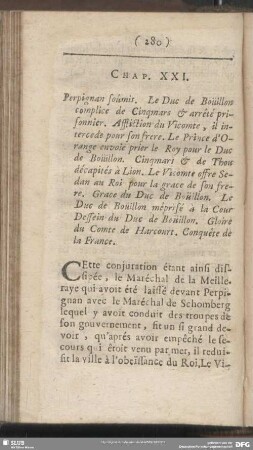 ( 280 )
CHAP. XXI.
Perpignan soûmis. Le Duc de Boüillon
complice de Cinqmars & arrêté pri-
sonnier. Affliction du Vicomte, il in-
tercede pour son frere. Le Prince d'O-
range envoïe prier le Roy pour le Duc
de Boüillon. Cinqmars & de Thou
décapités à Lion. Le Vicomte offre Se-
dan au Roi pour la grace de son fre-
re. Grace du Duc de Boüillon. Le
Duc de Boüillon méprisé à la Cour
Dessein du Duc de Boüillon. Gloire
du Comte de Harcourt. Conquête de
la France.
CEtte conjuration étant ainsi dis-
sipée, le Maréchal de la Meille-
raye qui avoit été laissé devant Perpi-
gnan avec le Maréchal de Schomberg
lequel y avoit conduit des troupes de
son gouvernement, fit un si grand de-
voir, qu'après avoir empêché le se-
cours qui étoit venu par mer, il redui-
sit la ville à l'obeïssance du Roi. Le Vi-
SLUB
DFG